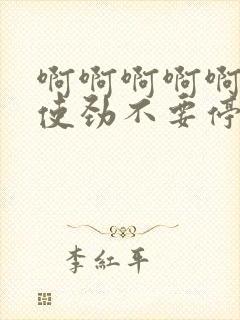 啊啊啊啊啊
使劲不要停
李红平